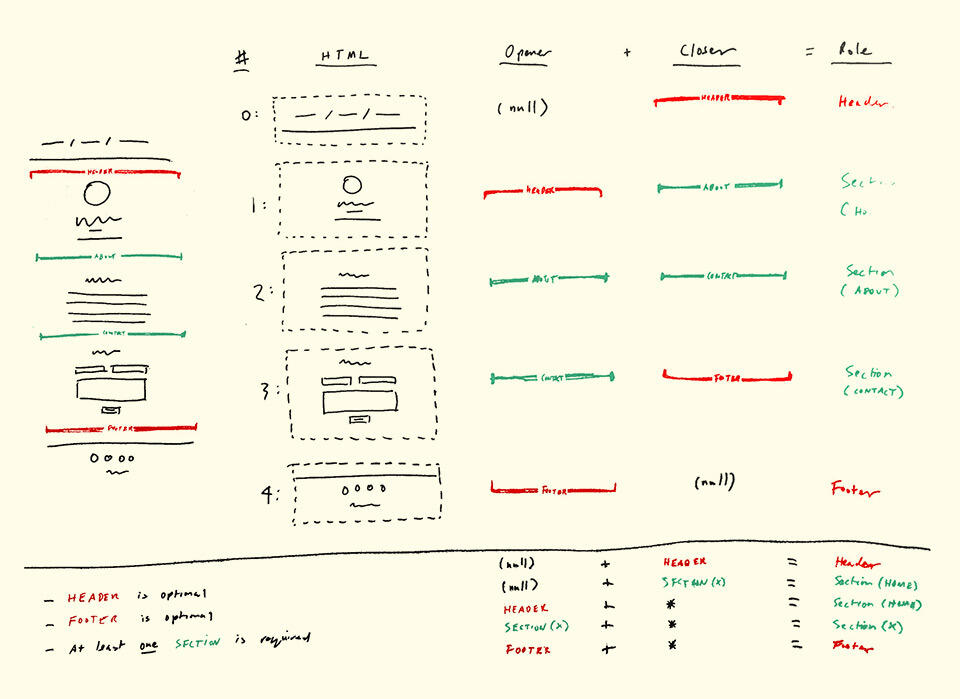 # HTML Opener + Closer = Role
0: (null) HEADER Header
HEADER
1: HEADER ABOUT Secti
(Ho
ABOUT
2: ABOUT CONTACT Section
(ABOUT)
CONTACT
3: CONTACT FOOTER Section
(CONTACT)
FOOTER
4: FOOTER (null) Footer
(null) + HEADER = Header
(null) + SECTION(X) = Section (HOME)
- HEADER is optional
HEADER + * = Section (HOME)
- FOOTER is optional
SECTION(X) + * = Section (X)
- At least one SECTION is required
FOOTER + * = Footer